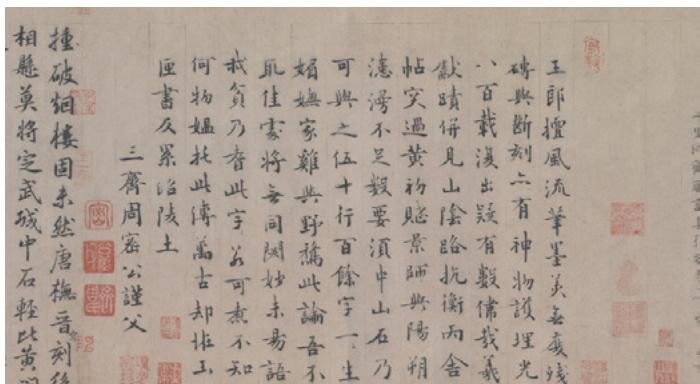 王郎擅風流筆墨美無度殘
磚與斷刻亦有神物護埋光
八百載復出疑有數偉哉羲
獻蹟併見山陰路抗衡兩舍
帖突過黃初賦景師與陽朔
漶漫不足數要須中山石乃
可與之伍十行百餘字一一生
媚嫵家雞與野鶩此論吾不
取佳處將無同閟妙未易語
我貧乃有此字若可煮不知
何物媼托此傳萬古却推玉
匣書反累昭陵土
三齊周密公謹父
捶破烟樓固未然唐橅晉刻
相縣莫將定武城中石輕比黃